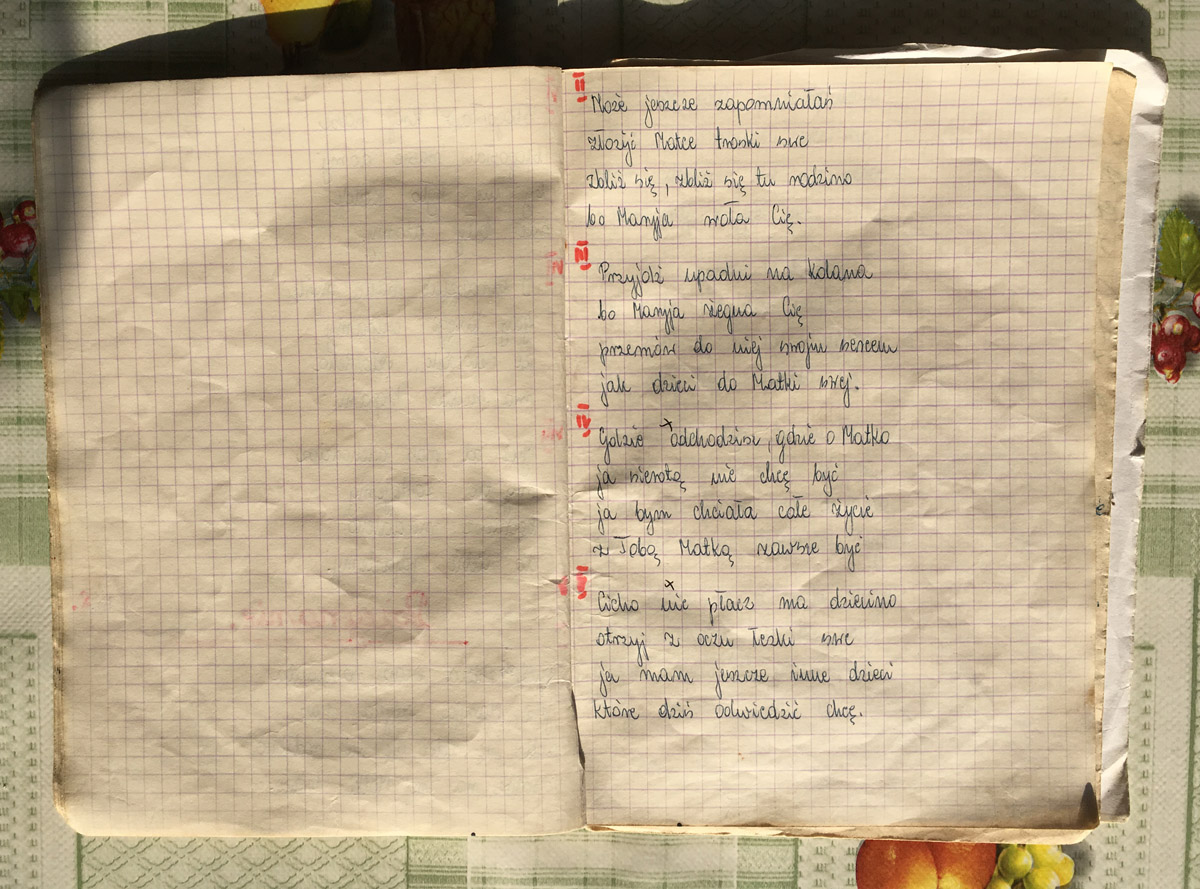 II
Może jeszcze zapomniałaś
złożyć Matce troski swe
zbliż się, zbliż się tu rodzino
bo Maryja woła Cię.
III
Przyjdź upadni na kolana
bo Maryja żegna Cię
przemów do niej swojm sercem
jak dzieci do Matki swej.
IV
Gdzie odchodzisz, gdzie o Matko
ja sierotą nie chcę być
ja bym chciała całe życie
z Tobą Matką zawsze być
V
Cicho nie płacz ma dziecino
otrzyj z oczu łezki swe
ja mam jeszcze inne dzieci
które dziś odwiedzić chcę.